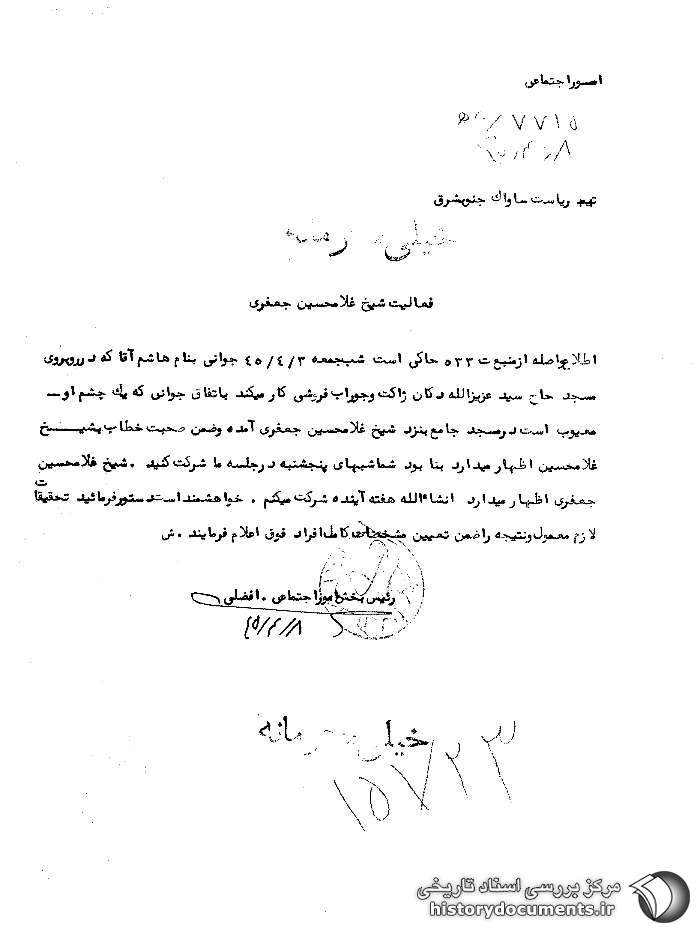 امور اجتماعی
۷۷۱۵
۴۵/۴/۸
تهیه ریاست ساواك جنوبشرق
خیلی محرمانه
فعالیت شیخ غلامحسین جعفری
اطلاع واصله از منبع ت ۵۳۳ حاکی است شب جمعه ۴۵/۴/۳ جوانی بنام هاشم آقا که در روبروی
مسجد حاج سید عزیزالله دکان ژاکت وجوراب فروشی کار میکند باتفاق جوانی که یك چشم او ـ
معیوب است در مسجد جامع بنزد شیخ غلامحسین جعفری آمده وضمن صحبت خطاب بشیـــخ
غلامحسین اظهار میدارد بنا بود شماشبهای پنجشنبه در جلسه ما شرکت کنید . شیخ غلامحسین
جعفری اظهار میدارد انشاءالله هفته آینده شرکت میکنم . خواهشمند است دستور فرمائید تحقیقات
لازم معمول ونتیجه راضمن تعیین مشخصات کامل افراد فوق اعلام فرمایند . ش
رئیس بخش امور اجتماعی . افضلی
۴۵/۴/۸
خیلی محرمانه
۱۵۷۲۳
مرکز بررسی اسناد تاریخی
historydocuments.ir